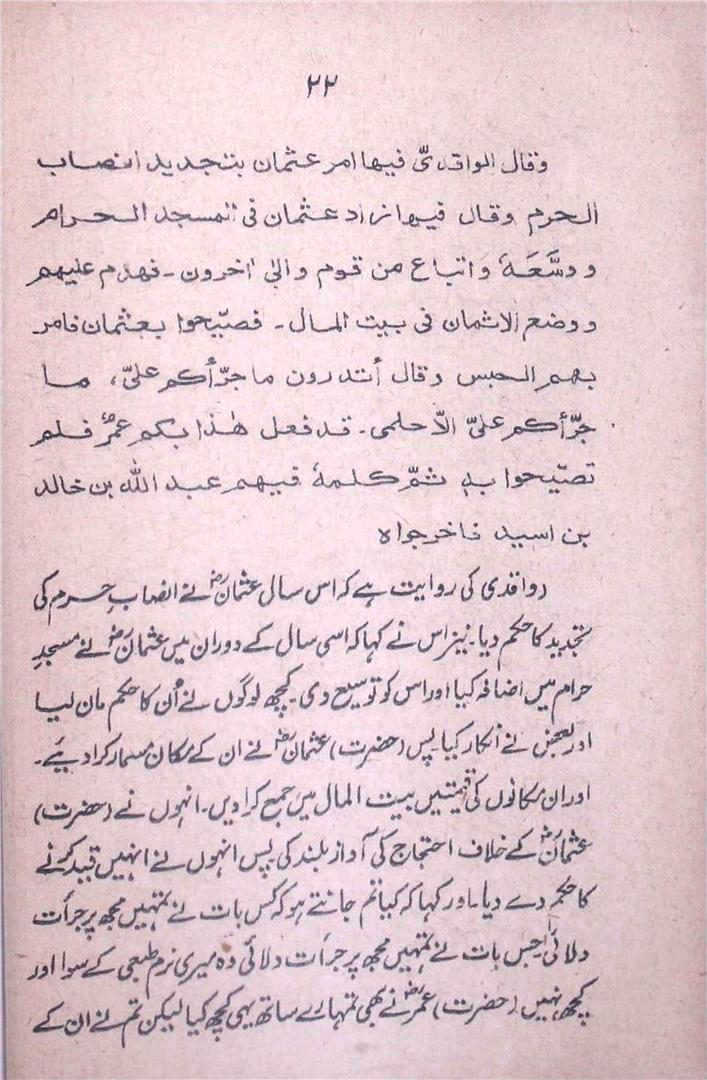 ۲۲
وقال الواقدیّ فیها امر عثمان بتجدید انصاب
الحرم وقال فیها زاد عثمان فی المسجد الحرام
ووسَّعَهٗ وَاتباع من قوم والیٰ اٰخرون ۔ فهدم علیهم
ووضع الاثمان فی بیت المال ۔ فصیّحوا بعثمان فامر
بهم الحبس وقال أتدرون ما جرّأکم علیّ ، ما
جرّأکم علیّ الاّ حلمی ۔ قد فعل هٰذا بکم عمرؓ فلم
تصیّحوا بہٖ ثمّ کلمهٗ فیهم عبد اللّٰه بن خالد
بن اسید فاخرجواه
(واقدی کی روایت ہے کہ اس سال عثمانؓ نے انصابِ حرم کی
تجدید کا حکم دیا۔ نیز اس نے کہا کہ اسی سال کے دوران میں عثمانؓ نے مسجدِ
حرام میں اضافہ کیا اور اس کو توسیع دی۔ کچھ لوگوں نے اُن کا حکم مان لیا
اور بعض نے انکار کیا پس (حضرت) عثمانؓ نے ان کے مکان مسمار کرا دیئے۔
اور ان مکانوں کی قیمتیں بیت المال میں جمع کرا دیں۔ انہوں نے (حضرت)
عثمانؓ کے خلاف احتجاج کی آواز بلند کی پس انہوں نے انہیں قید کرنے
کا حکم دے دیا۔ اور کہا کہ کیا تم جانتے ہو کہ کس بات نے تمہیں مجھ پر جرأت
دلائی، جس بات نے تمہیں مجھ پر جرأت دلائی وہ میری نرم طبعی کے سوا اور
کچھ نہیں۔ (حضرت) عمرؓ نے بھی تمہارے ساتھ یہی کچھ کیا لیکن تم نے ان کے